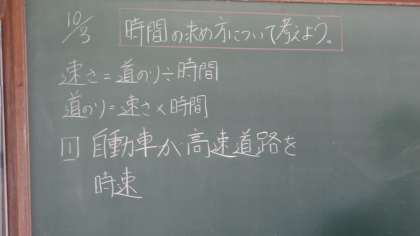 10/3 時間の求め方について考えよう。
速さ=道のり÷時間
道のり=速さ×時間
1 自動車が高速道路を
時速